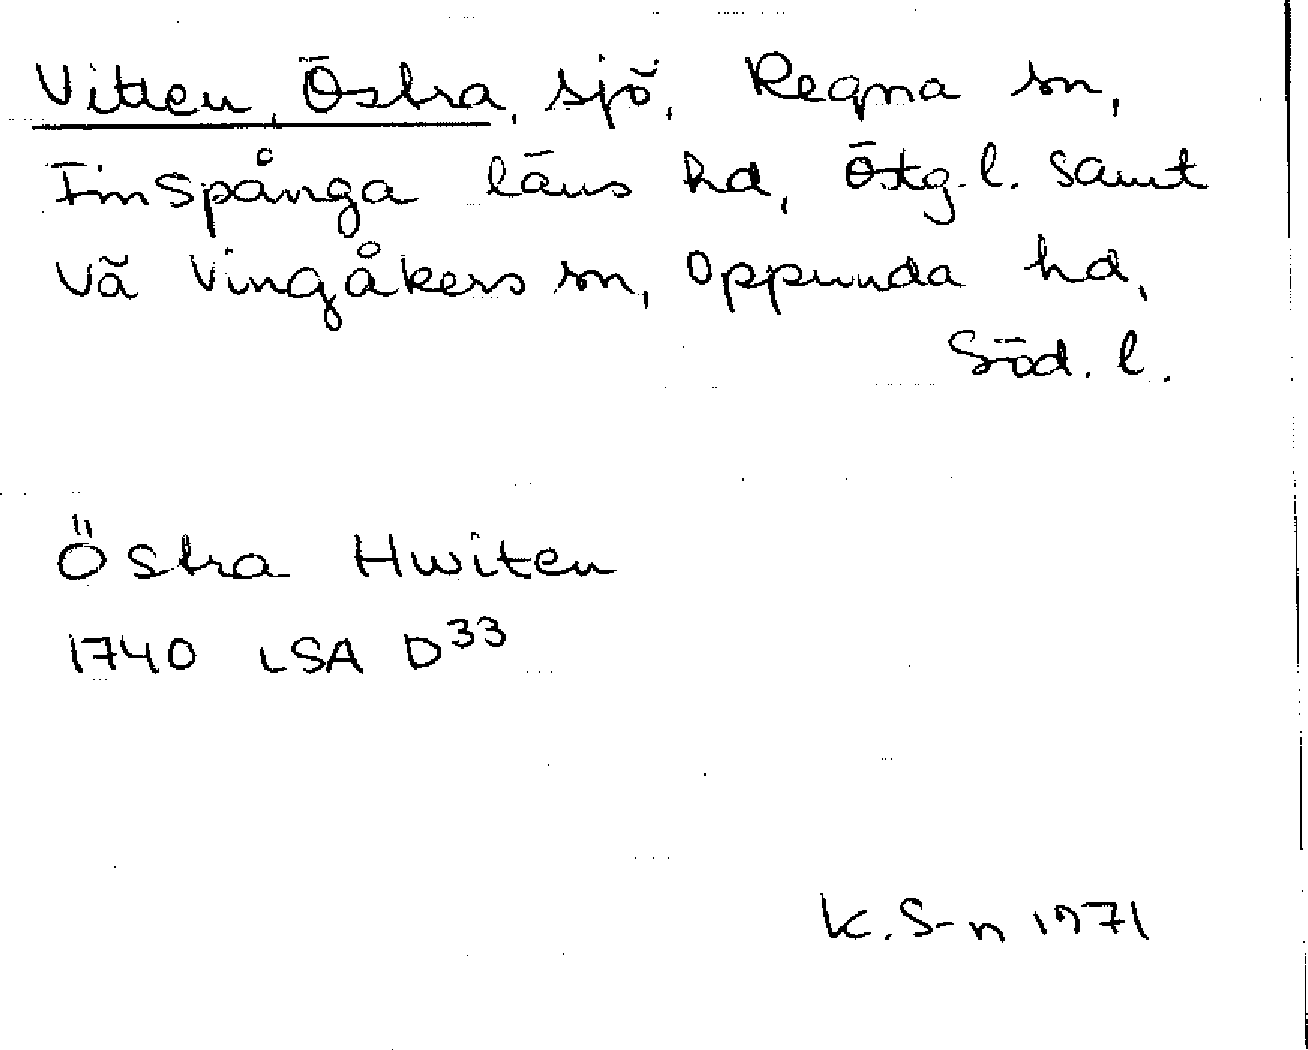 Vitten, Östra, sjö, Regna sn,
Finspånga läns hd, Östg. l. samt
Vä Vingåkers sn, Oppunda hd,
Söd. l.
Östra Hwiten
1740 LSA D33
K. S-n 1971